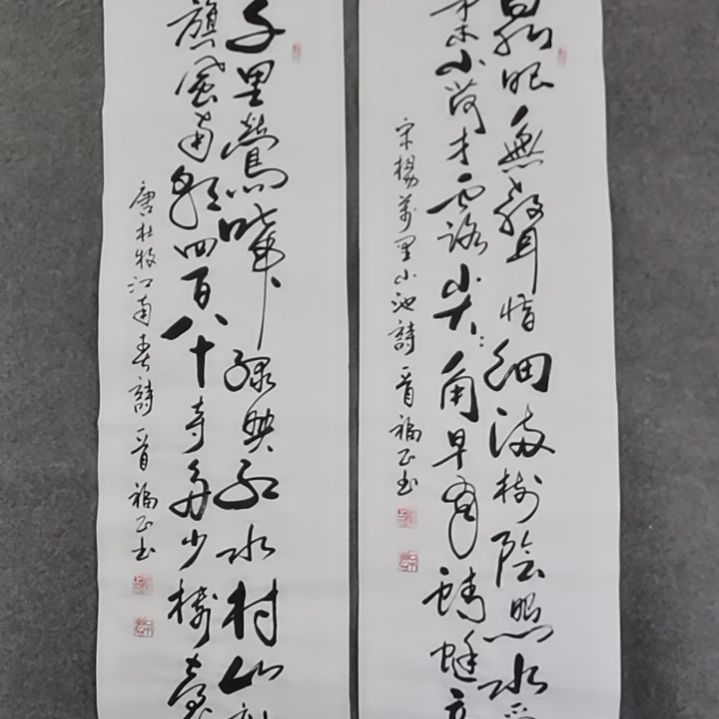 泉眼無聲惜細流樹陰照水愛
柔小荷才露尖尖角早有蜻蜓立
宋楊萬里小池詩一首福正书
千里鶯啼绿映红水村山郭
旗風南朝四百八十寺多少樓臺
唐杜牧江南春詩一首福正书